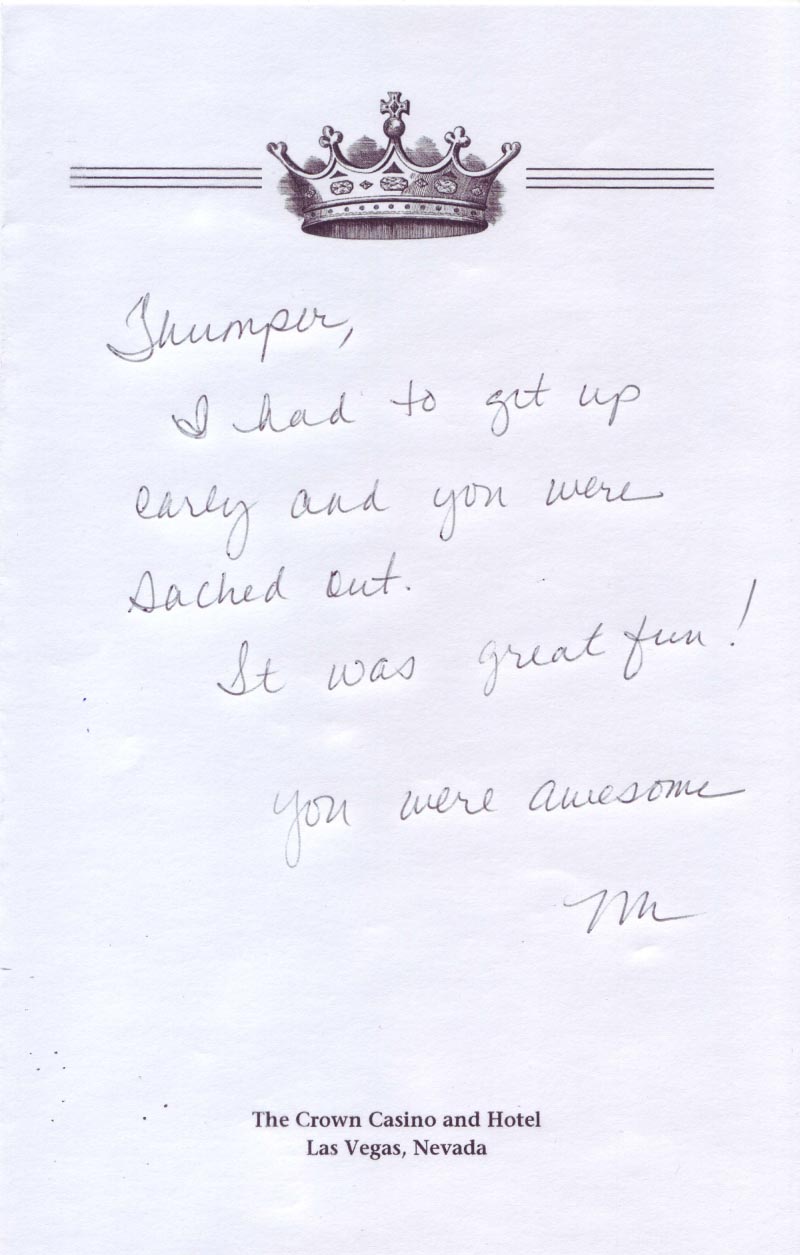 Thumper,
I had to get up
early and you were
sached out.
It was great fun!
you were awesome
M
The Crown Casino and Hotel
Las Vegas, Nevada